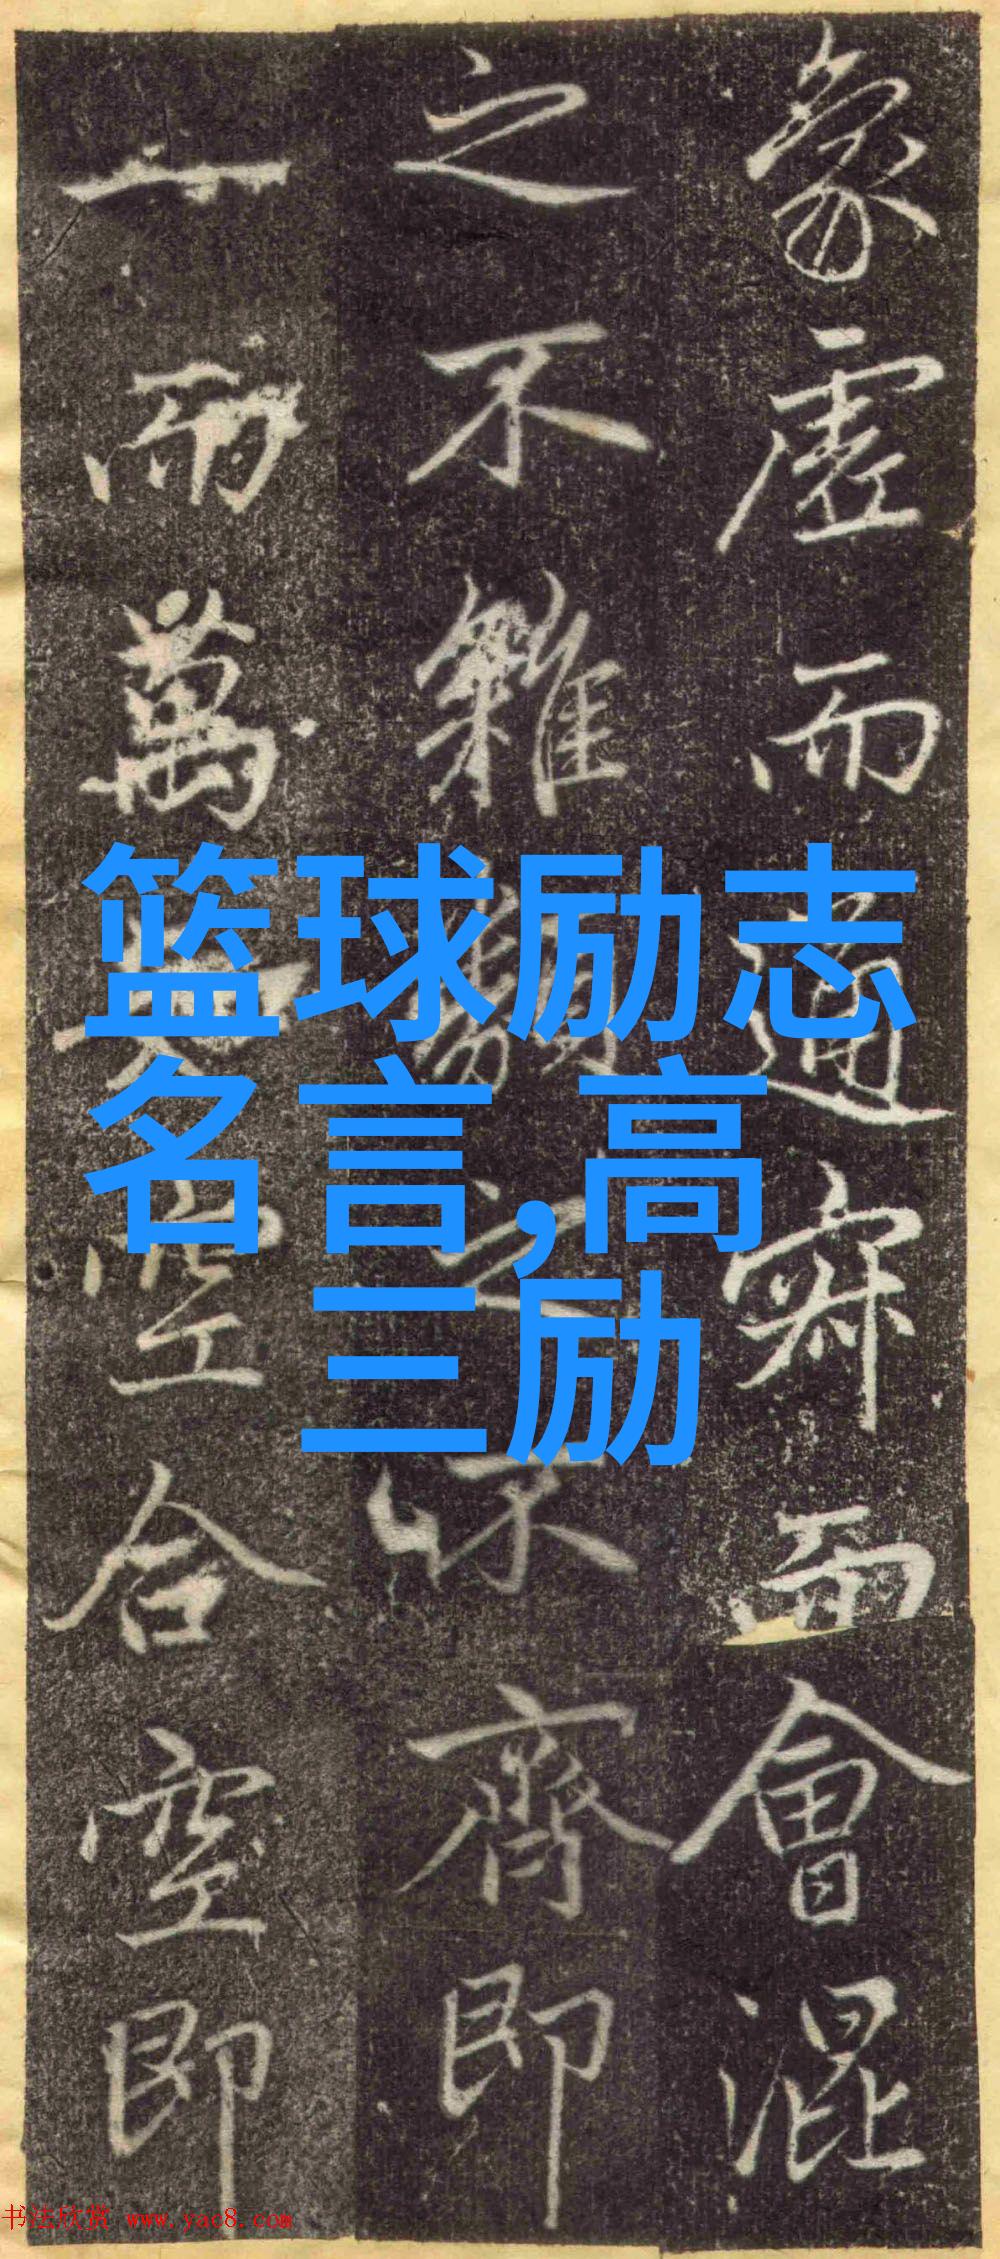 象虛而通寂而會混
之不雜之不齊即
一而萬空合空即
篮球励志
名言,高
三励
书法欣赏 www.yac8.com